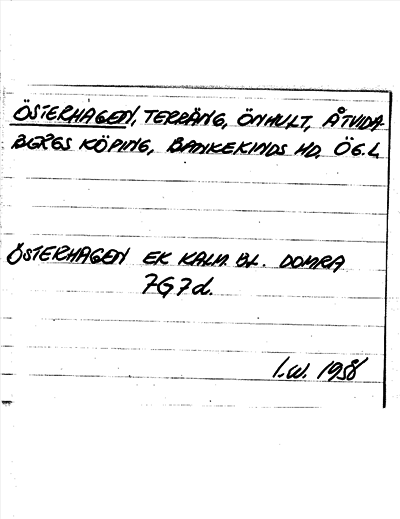 ÖSTERHAGEN, TERRÄNG, ÖNHULT, ÅTVIDA
BERGS KÖPING, BANKEKINDS HD. ÖG.L.
ÖSTERHAGEN EK. KALM. BL. DOMRA
7G7d.
I.W. 1958